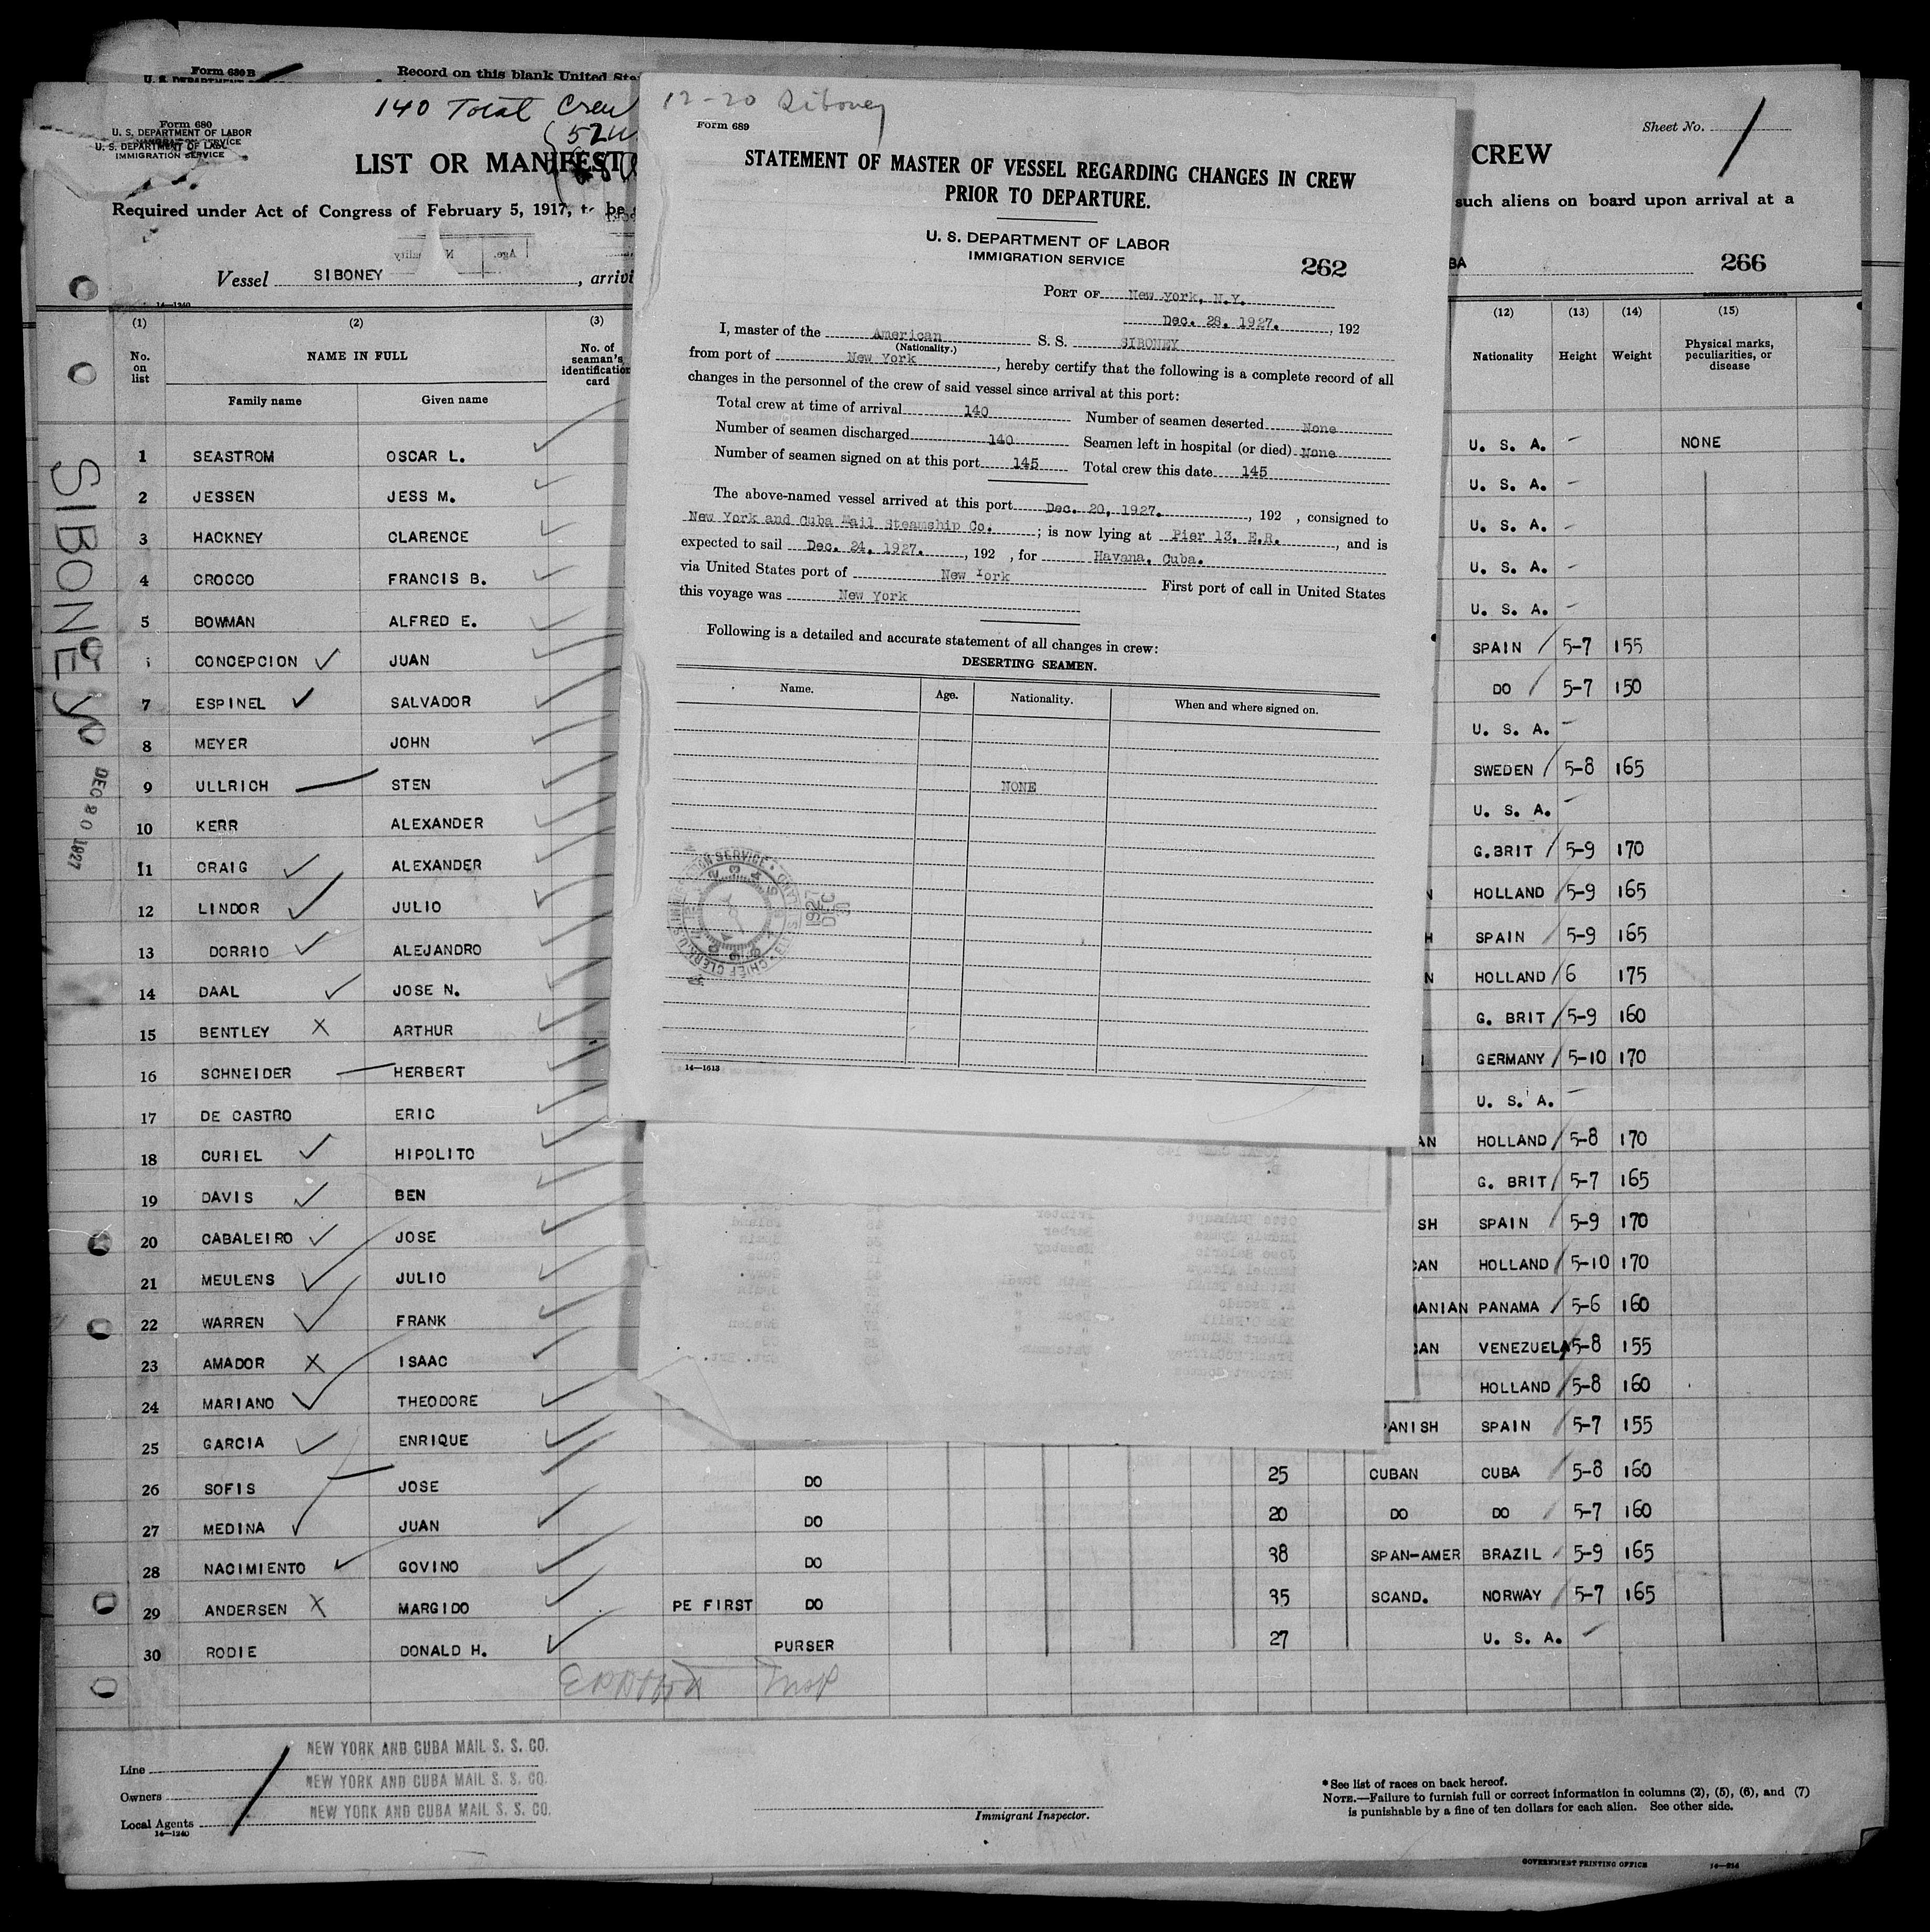 Form 680 B
Record on this blank United Sta
140 Total Crew
Form 680
U. S. DEPARTMENT OF LABOR
IMMIGRATION SERVICE
LIST OR MANIFEST
CREW
Sheet No. 1
Required under Act of Congress of February 5, 1917, to be
such aliens on board upon arrival at a
Vessel SIBONEY, arrivi
BA
266
14—1240
SIBONEY
DEC 20 1927
12-20 Siboney
Form 689
STATEMENT OF MASTER OF VESSEL REGARDING CHANGES IN CREW
PRIOR TO DEPARTURE.
U. S. DEPARTMENT OF LABOR
IMMIGRATION SERVICE
262
PORT OF New York, N.Y.
Dec. 28, 1927. , 192
I, master of the American S. S. SIBONEY
(Nationality.)
from port of New York, hereby certify that the following is a complete record of all
changes in the personnel of the crew of said vessel since arrival at this port:
Total crew at time of arrival 140 Number of seamen deserted None
Number of seamen discharged 140 Seamen left in hospital (or died) None
Number of seamen signed on at this port 145 Total crew this date 145
The above-named vessel arrived at this port Dec. 20, 1927. , 192 , consigned to
New York and Cuba Mail Steamship Co. ; is now lying at Pier 13, E.R. , and is
expected to sail Dec. 24, 1927. , 192 , for Havana, Cuba.
via United States port of New York First port of call in United States
this voyage was New York
Following is a detailed and accurate statement of all changes in crew:
DESERTING SEAMEN.
Name. Age. Nationality. When and where signed on.
NONE
14—1613
(1) (2) (3) (12) (13) (14) (15)
No. on list NAME IN FULL No. of seaman's identification card Nationality Height Weight Physical marks, peculiarities, or disease
Family name Given name
1 SEASTROM OSCAR L. U. S. A. NONE
2 JESSEN JESS M. U. S. A.
3 HACKNEY CLARENCE U. S. A.
4 CROCCO FRANCIS B. U. S. A.
5 BOWMAN ALFRED E. U. S. A.
CONCEPCION JUAN SPAIN 5-7 155
7 ESPINEL SALVADOR DO 5-7 150
8 MEYER JOHN U. S. A.
9 ULLRICH STEN SWEDEN 5-8 165
10 KERR ALEXANDER U. S. A.
11 CRAIG ALEXANDER G.BRIT 5-9 170
12 LINDOR JULIO N HOLLAND 5-9 165
13 DORRIO ALEJANDRO H SPAIN 5-9 165
14 DAAL JOSE N. N HOLLAND 6 175
15 BENTLEY X ARTHUR G. BRIT 5-9 160
16 SCHNEIDER HERBERT GERMANY 5-10 170
17 DE CASTRO ERIC U. S. A.
18 CURIEL HIPOLITO AN HOLLAND 5-8 170
19 DAVIS BEN G. BRIT 5-7 165
20 CABALEIRO JOSE SH SPAIN 5-9 170
21 MEULENS JULIO CAN HOLLAND 5-10 170
22 WARREN FRANK MANIAN PANAMA 5-6 160
23 AMADOR X ISAAC CAN VENEZUELA 5-8 155
24 MARIANO THEODORE HOLLAND 5-8 160
25 GARCIA ENRIQUE PANISH SPAIN 5-7 155
26 SOFIS JOSE DO 25 CUBAN CUBA 5-8 160
27 MEDINA JUAN DO 20 DO DO 5-7 160
28 NACIMIENTO GOVINO DO 38 SPAN-AMER BRAZIL 5-9 165
29 ANDERSEN X MARGIDO PE FIRST DO 35 SCAND. NORWAY 5-7 165
30 RODIE DONALD H. PURSER 27 U. S. A.
Insp
Line NEW YORK AND CUBA MAIL S. S. CO.
Owners NEW YORK AND CUBA MAIL S. S. CO.
Local Agents NEW YORK AND CUBA MAIL S. S. CO.
14—1240
Immigrant Inspector.
*See list of races on back hereof.
NOTE.—Failure to furnish full or correct information in columns (2), (5), (6), and (7)
is punishable by a fine of ten dollars for each alien. See other side.
GOVERNMENT PRINTING OFFICE 14—214